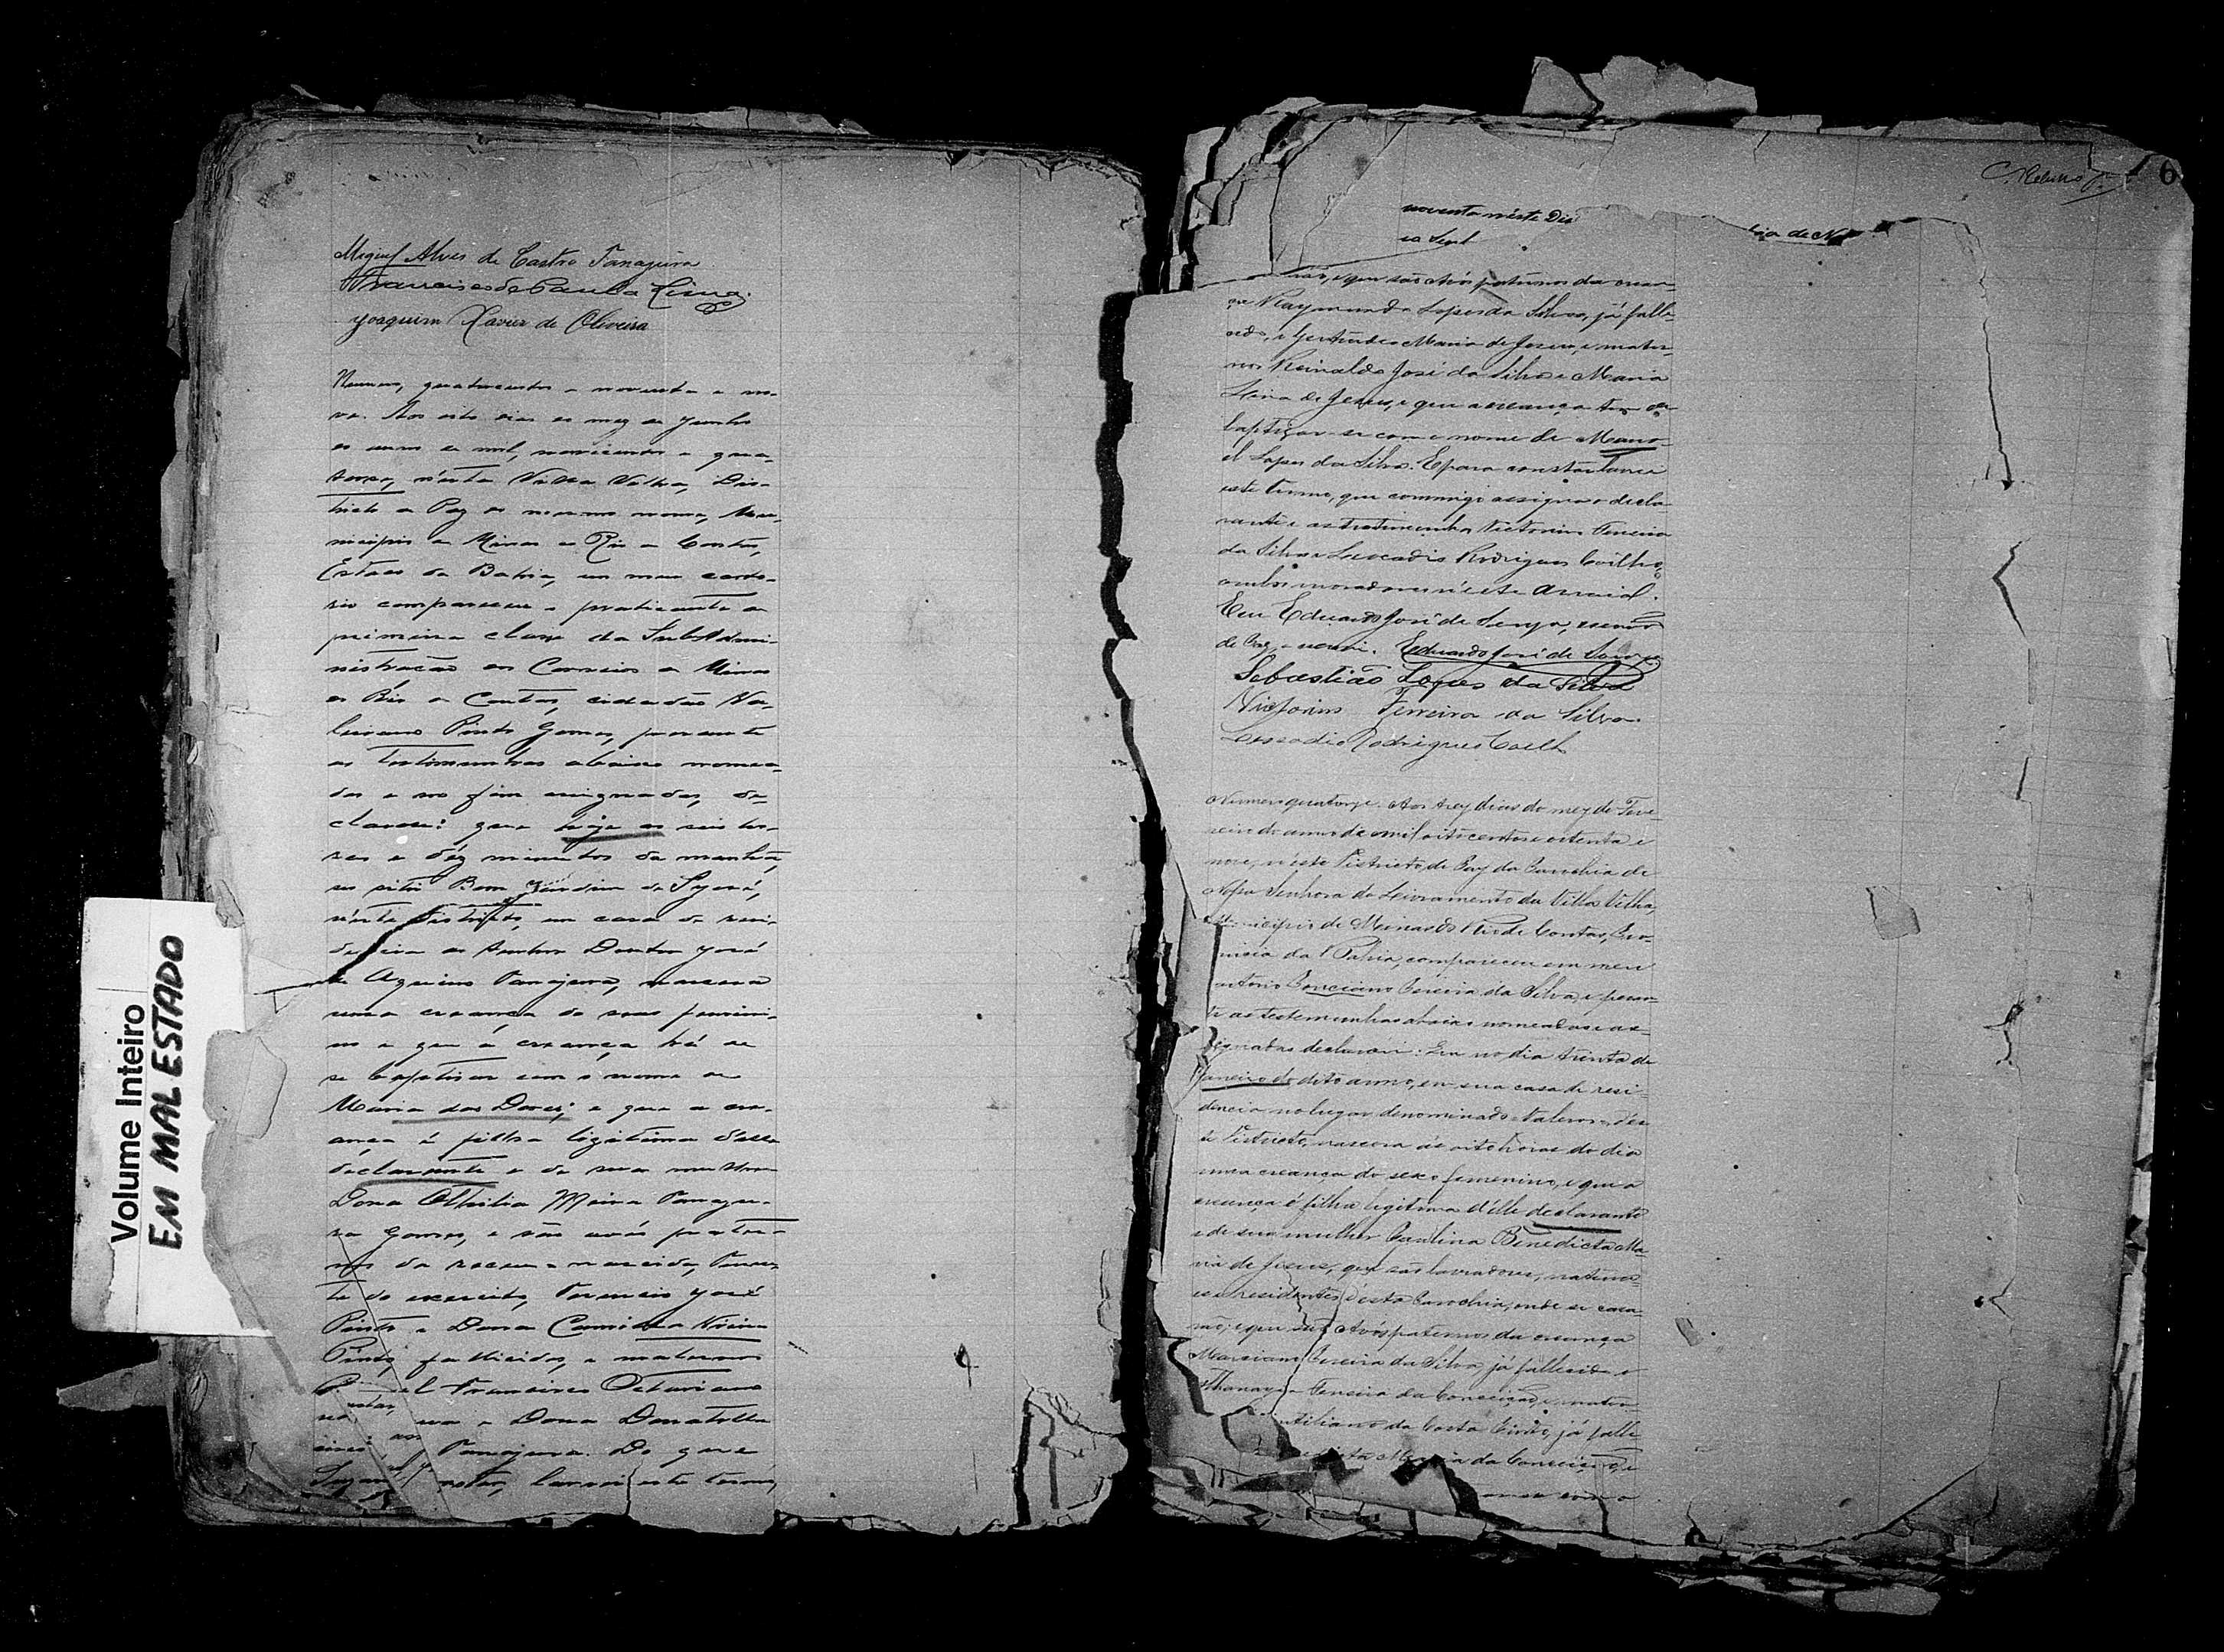 Miguel Alves de Castro Tanajura
Francisco de Paula Lima
Joaquim Xavier de Oliveira
Numero, quatrocentos e noventa e no-
ve. Aos oito dias do mez de Junho
do anno de mil, novecentos e qua-
torse, nésta Villa Velha, Dis-
tricto de Paz do mesmo nome, Mu-
nicipio de Minas do Rio de Contas,
Estado da Bahia, em meu carto-
rio compareceu o praticante de
primeira classe da Sub-Admi-
nistração dos Correios de Minas
do Rio de Contas, cidadão Va-
leriano Pinto Gomes, perante
as testemunhas abaixo nomea-
das e no fim assignadas, de-
clarou: que hoje as seis ho-
ras e déz minutos da manhã,
no sitio Bom Jardim de
néste Districto, em casa de resi-
dencia do Senhor Doutor José
de Aquino Tanajura, nasceu
uma creança do sexo femini-
no e que a creança há de
se baptisar com o nome de
Maria das Dores; e que a cre-
ança é filha legitima delle
declarante e de sua mulher
Dona Othilia Meira Tanaju-
ra Gomes, e são avós pater-
nos da recem-nascida, Tenen-
te do exercito, José
Pinto e Dona Camilla Vieira
Pinto, fallecidos, e maternos
Francisco Octaviano
e Dona Donatilla
Tanajura. Do que
lavrei este termo,
Volume Inteiro
EM MAL ESTADO
6
noventa néste Dis
ia de N
sa Senh
e que são Avós paternos da crean-
ça Raymundo Lopes da Silva, já falle-
cido, e Gertrudes Maria de Jesus, e mater-
nos Reinaldo José da Silva e Maria
de Jesus, e que a creança tem de
baptizar-se com o nome de Mano-
el Lopes da Silva. E para constar lavrei
este termo, que commigo assigna o decla-
rante e as testemunhas Victorino Ferreira
da Silva e Leocadio Rodrigues Coelho,
ambos moradores néste Arraial.
Eu Eduardo José de Souza, escrivão
de Paz o escrevi. Eduardo José de Souza
Sebastião Lopes da Silva
Victorino Ferreira da Silva
Leocadio Rodrigues Coelh
Numero quatorze. Aos trez dias do mez de Feve-
reiro do anno de mil oitocentos e oitenta e
nove, néste Districto de Paz da Parochia de
Nossa Senhora do Livramento da Villa Velha,
Municipio de Minas do Rio de Contas, Pro-
vincia da Bahia, compareceu em meu
cartorio Ponciano Pereira da Silva, e peran-
te as testemunhas abaixo nomeadas e as-
signadas declarou: Em no dia trinta de
Janeiro do dito anno, em sua casa de resi-
dencia no lugar denominado dés-
te Districto, nascera ás oito horas do dia
uma creança do sexo femenino, e que a
creança é filha legitima d'elle declarante
e de sua mulher Carolina Benedicta Ma-
ria de Jesus, que são lavradores, naturaes
e residentes désta Parochia, onde se casa-
rão; e que são Avós paternos da creança
Marciano Pereira da Silva, já fallecido e
Ferreira da Conceição, e mater-
da Costa Pinto, já falle
Maria da Conceição, e
com o